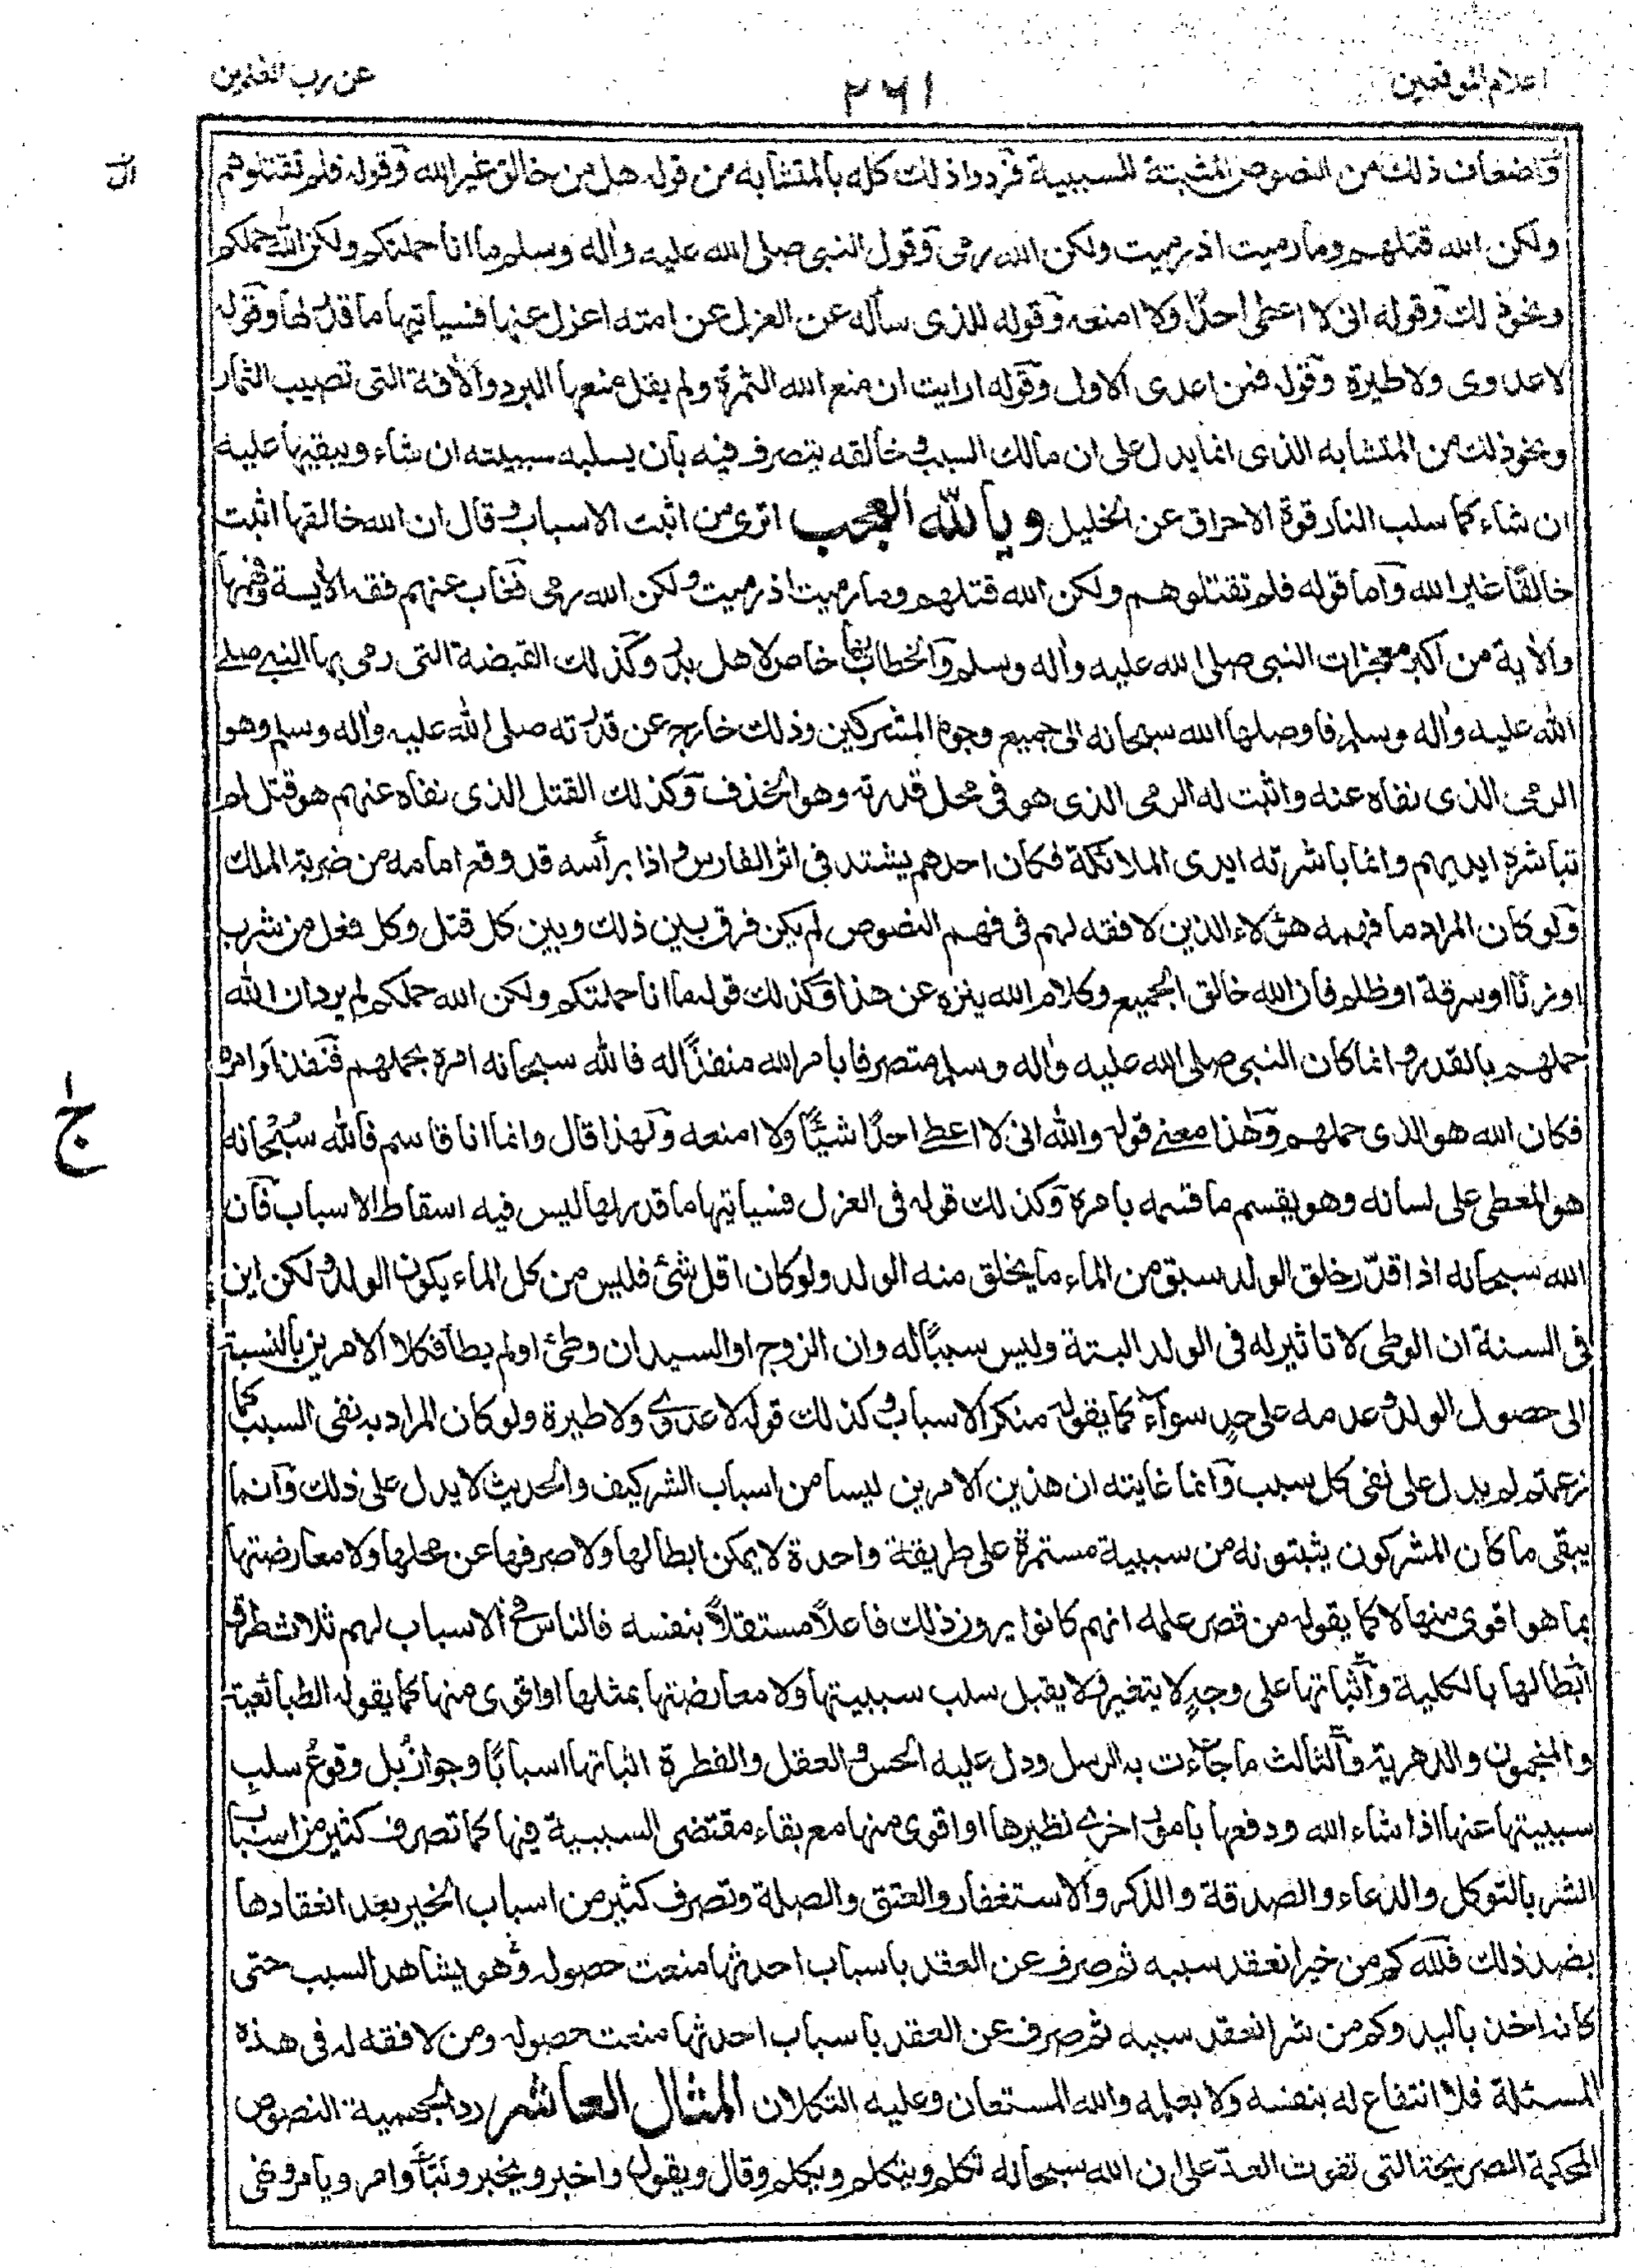 اعلام الموقعين
٢٦١
عن رب العلمين
وآضعاف ذلك من النصوص المثبتة للسببية فردوا ذلك كله بالمتشابه من قوله هل من خالق غير الله وقوله فلم تقتلوهم
ولكن الله قتلهم وما رميت اذ رميت ولكن الله رمى وقول النبى صلى الله عليه واٰله وسلم ما انا حملتكم ولكن الله حملكم
ونحو ذلك وقوله انى لا اعطى احدًا ولا امنعه وقوله للذى سأله عن العزل عن امته اعزل عنها فسيأتيها ما قدر لها وقوله
لا عدوى ولا طيرة وقوله فمن اعدى الاول وقوله ارايت ان منع الله الثمرة ولم يقل منعها البرد والاٰفة التى تصيب الثمار
ونحو ذلك من المتشابه الذى انما يدل على ان مالك السبب وخالقه يتصرف فيه بأن يسلبه سببيته ان شاء ويبقيها عليه
ان شاء كما سلب النار قوة الاحراق عن الخليل ويا لله العجب اترى من اثبت الاسباب وقال ان الله خالقها اثبت
خالقًا غير الله وآما قوله فلم تقتلوهم ولكن الله قتلهم وما رميت اذ رميت ولكن الله رمى فغاب عنهم فقه الاٰية وفهمها
والاٰية من اكبر معجزات النبى صلى الله عليه واٰله وسلم والخطاب بها خاص لاهل بدر وكذلك القبضة التى رمى بها النبى صلى
الله عليه واٰله وسلم فاوصلها الله سبحانه الى جميع وجوه المشركين وذلك خارج عن قدرته صلى الله عليه واٰله وسلم وهو
الرمى الذى نفاه عنه واثبت له الرمى الذى هو فى محل قدرته وهو الخذف وكذلك القتل الذى نفاه عنهم هو قتل لم
تباشره ايديهم وانما باشرته ايدى الملائكة فكان احدهم يشتد فى اثر الفارس واذا برأسه قد وقع امامه من ضربة الملك
ولو كان المراد ما فهمه هؤلاء الذين لا فقه لهم فى فهم النصوص لم يكن فرق بين ذلك وبين كل قتل وكل فعل من شرب
او زنًا او سرقة او ظلم فان الله خالق الجميع وكلام الله ينزه عن هذا وكذلك قوله ما انا حملتكم ولكن الله حملكم لم يرد ان الله
حملهم بالقدر وانما كان النبى صلى الله عليه واٰله وسلم متصرفا بامر الله منفذًا له فالله سبحانه امره بحملهم فنفذ اوامره
فكان الله هو الذى حملهم وهٰذا معنى قوله والله انى لا اعطى احدًا شيئًا ولا امنعه ولهذا قال وانما انا قاسم فالله سبحانه
هو المعطى على لسانه وهو يقسم ما قسمه بامره وكذلك قوله فى العزل فسياتيها ما قدر لها ليس فيه اسقاط الاسباب فان
الله سبحانه اذا قدّر خلق الولد سبق من الماء ما يخلق منه الولد ولو كان اقل شئ فليس من كل الماء يكون الولد ولكن اين
فى السنة ان الوطى لا تاثير له فى الولد البتة وليس سببًا له وان الزوج او السيد ان وطئ او لم يطأ فكلا الامرين بالنسبة
الى حصول الولد وعدمه على حدٍ سواء كما يقوله منكر الاسباب وكذلك قوله لا عدوى ولا طيرة ولو كان المراد به نفى السبب كما
زعمتم لم يدل على نفى كل سبب وآنما غايته ان هذين الامرين ليسا من اسباب الشر كيف والحديث لا يدل على ذلك وآنما
يبقى ما كان المشركون يثبتونه من سببية مستمرة على طريقة واحدة لا يمكن ابطالها ولا صرفها عن محلها ولا معارضتها
بما هو اقوى منها لا كما يقوله من قصر علمه انهم كانوا يرون ذلك فاعلًا مستقلًا بنفسه فالناس فى الاسباب لهم ثلاث طرق
ابطالها بالكلية واثباتها على وجهٍ لا يتغير ولا يقبل سلب سببيتها ولا معارضتها بمثلها او اقوى منها كما يقوله الطبائعية
والمنجمون والدهرية والثالث ما جاءت به الرسل ودل عليه الحس والعقل والفطرة اثباتها اسبابًا وجواز بل وقوع سلب
سببيتها عنها اذا شاء الله ودفعها بامور اخرى نظيرها او اقوى منها مع بقاء مقتضى السببية فيها كما تصرف كثير من اسباب
الشر بالتوكل والدعاء والصدقة والذكر والاستغفار والعتق والصلة وتصرف كثير من اسباب الخير بعد انعقادها
بضد ذلك فلله كم من خير انعقد سببه ثم صرف عن العقد باسباب احدثها منعت حصوله وهو يشاهد السبب حتى
كانه اخذ باليد وكم من شر انعقد سببه ثم صرف عن العقد باسباب احدثها منعت حصوله ومن لا فقه له فى هذه
المسئلة فلا انتفاع له بنفسه ولا بعلمه والله المستعان وعليه التكلان المثال العاشر رد الجهمية النصوص
المحكمة الصريحة التى تفوت العدّ على ان الله سبحانه تكلم ويتكلم ويكلم وقال ويقول واخبر ويخبر ونبّأ وامر ويامر ونهى
ج ١